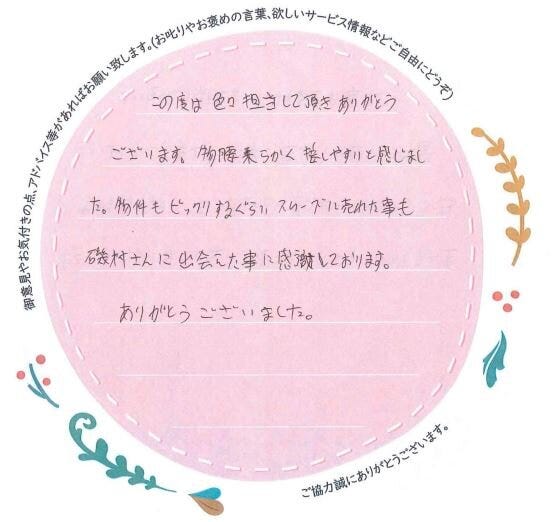 御意見やお気付きの点、アドバイス等があればお願い致します。(お叱りやお褒めの言葉、欲しいサービス情報などご自由にどうぞ)
この度は 色々 担当して頂き ありがとう
ございます。物腰柔らかく 接しやすいと感じまし
た。物件も ビックリするぐらい スムーズに売れた事も
磯村さんに 出会えた事に感謝しております。
ありがとう ございました。
ご協力誠にありがとうございます。